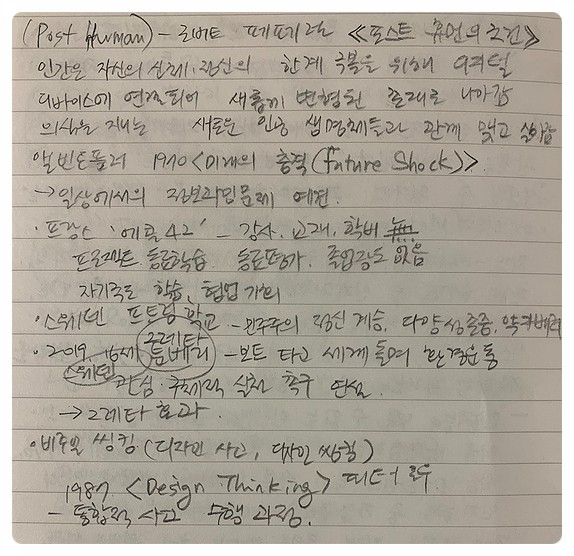 (Post Human) - 로버트 페페렐 ≪포스트 휴먼의 조건≫
인간은 자신의 신체·정신의 한계 극복을 위해 여러 덜
디바이스에 연결되어 새롭게 변형된 존재로 나아감
의식을 지니는 새로운 인공 생명체들과 관계 맺고 살아감
앨빈토플러 1970 <미래의 충격(Future Shock)>
→ 일상에서의 정보과잉문제 예견.
· 프랑스 '에꼴 42' - 강사, 교재, 학비 無
프로젝트 동료학습. 동료평가. 졸업장도 없음
자기주도 학습, 협업 강의
· 스웨덴 프트럼 학교 - 민주주의 정신 계승, 다양성 존중,
· 2019. 16세 그레타 툰베리 - 보트 타고 세계 돌며 환경운동
스웨덴 관심·구체적 실천 촉구 연설.
→ 그레타 효과.
· 비주얼 씽킹 (디자인 사고, 디자인 씽킹)
1987. <Design Thinking> 피터 로우
- 통합적 사고 수행 과정.